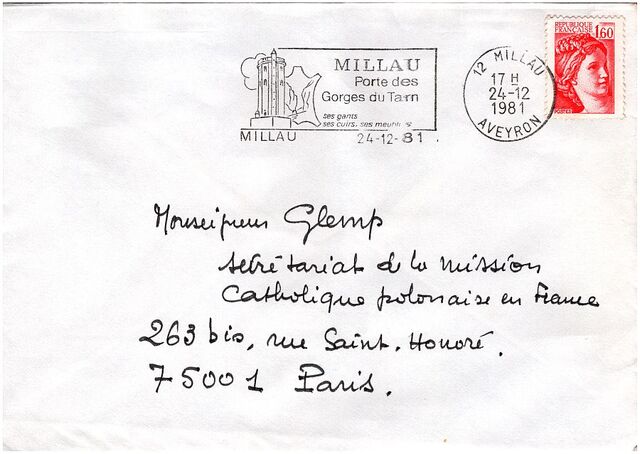 MILLAU
Porte des
Gorges du Tarn
ses gants
ses cuirs, ses meubles
MILLAU 24-12-81
12 MILLAU
17 H
24-12
1981
AVEYRON
REPUBLIQUE
FRANÇAISE
1,60
Monseigneur Glemp
secrétariat de la mission
Catholique polonaise en France
263 bis, rue Saint-Honoré.
75001 Paris.